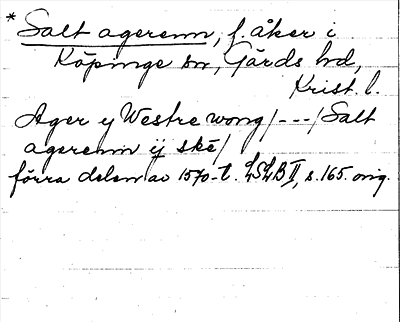 * Salt agerenn, f. åker i
Köpinge sn, Gärds hd,
Krist. l.
Ager y Westre wong/---/Salt
agerenn ij ske/
förra delen av 1570-t. LSLB II, s. 165. orig.